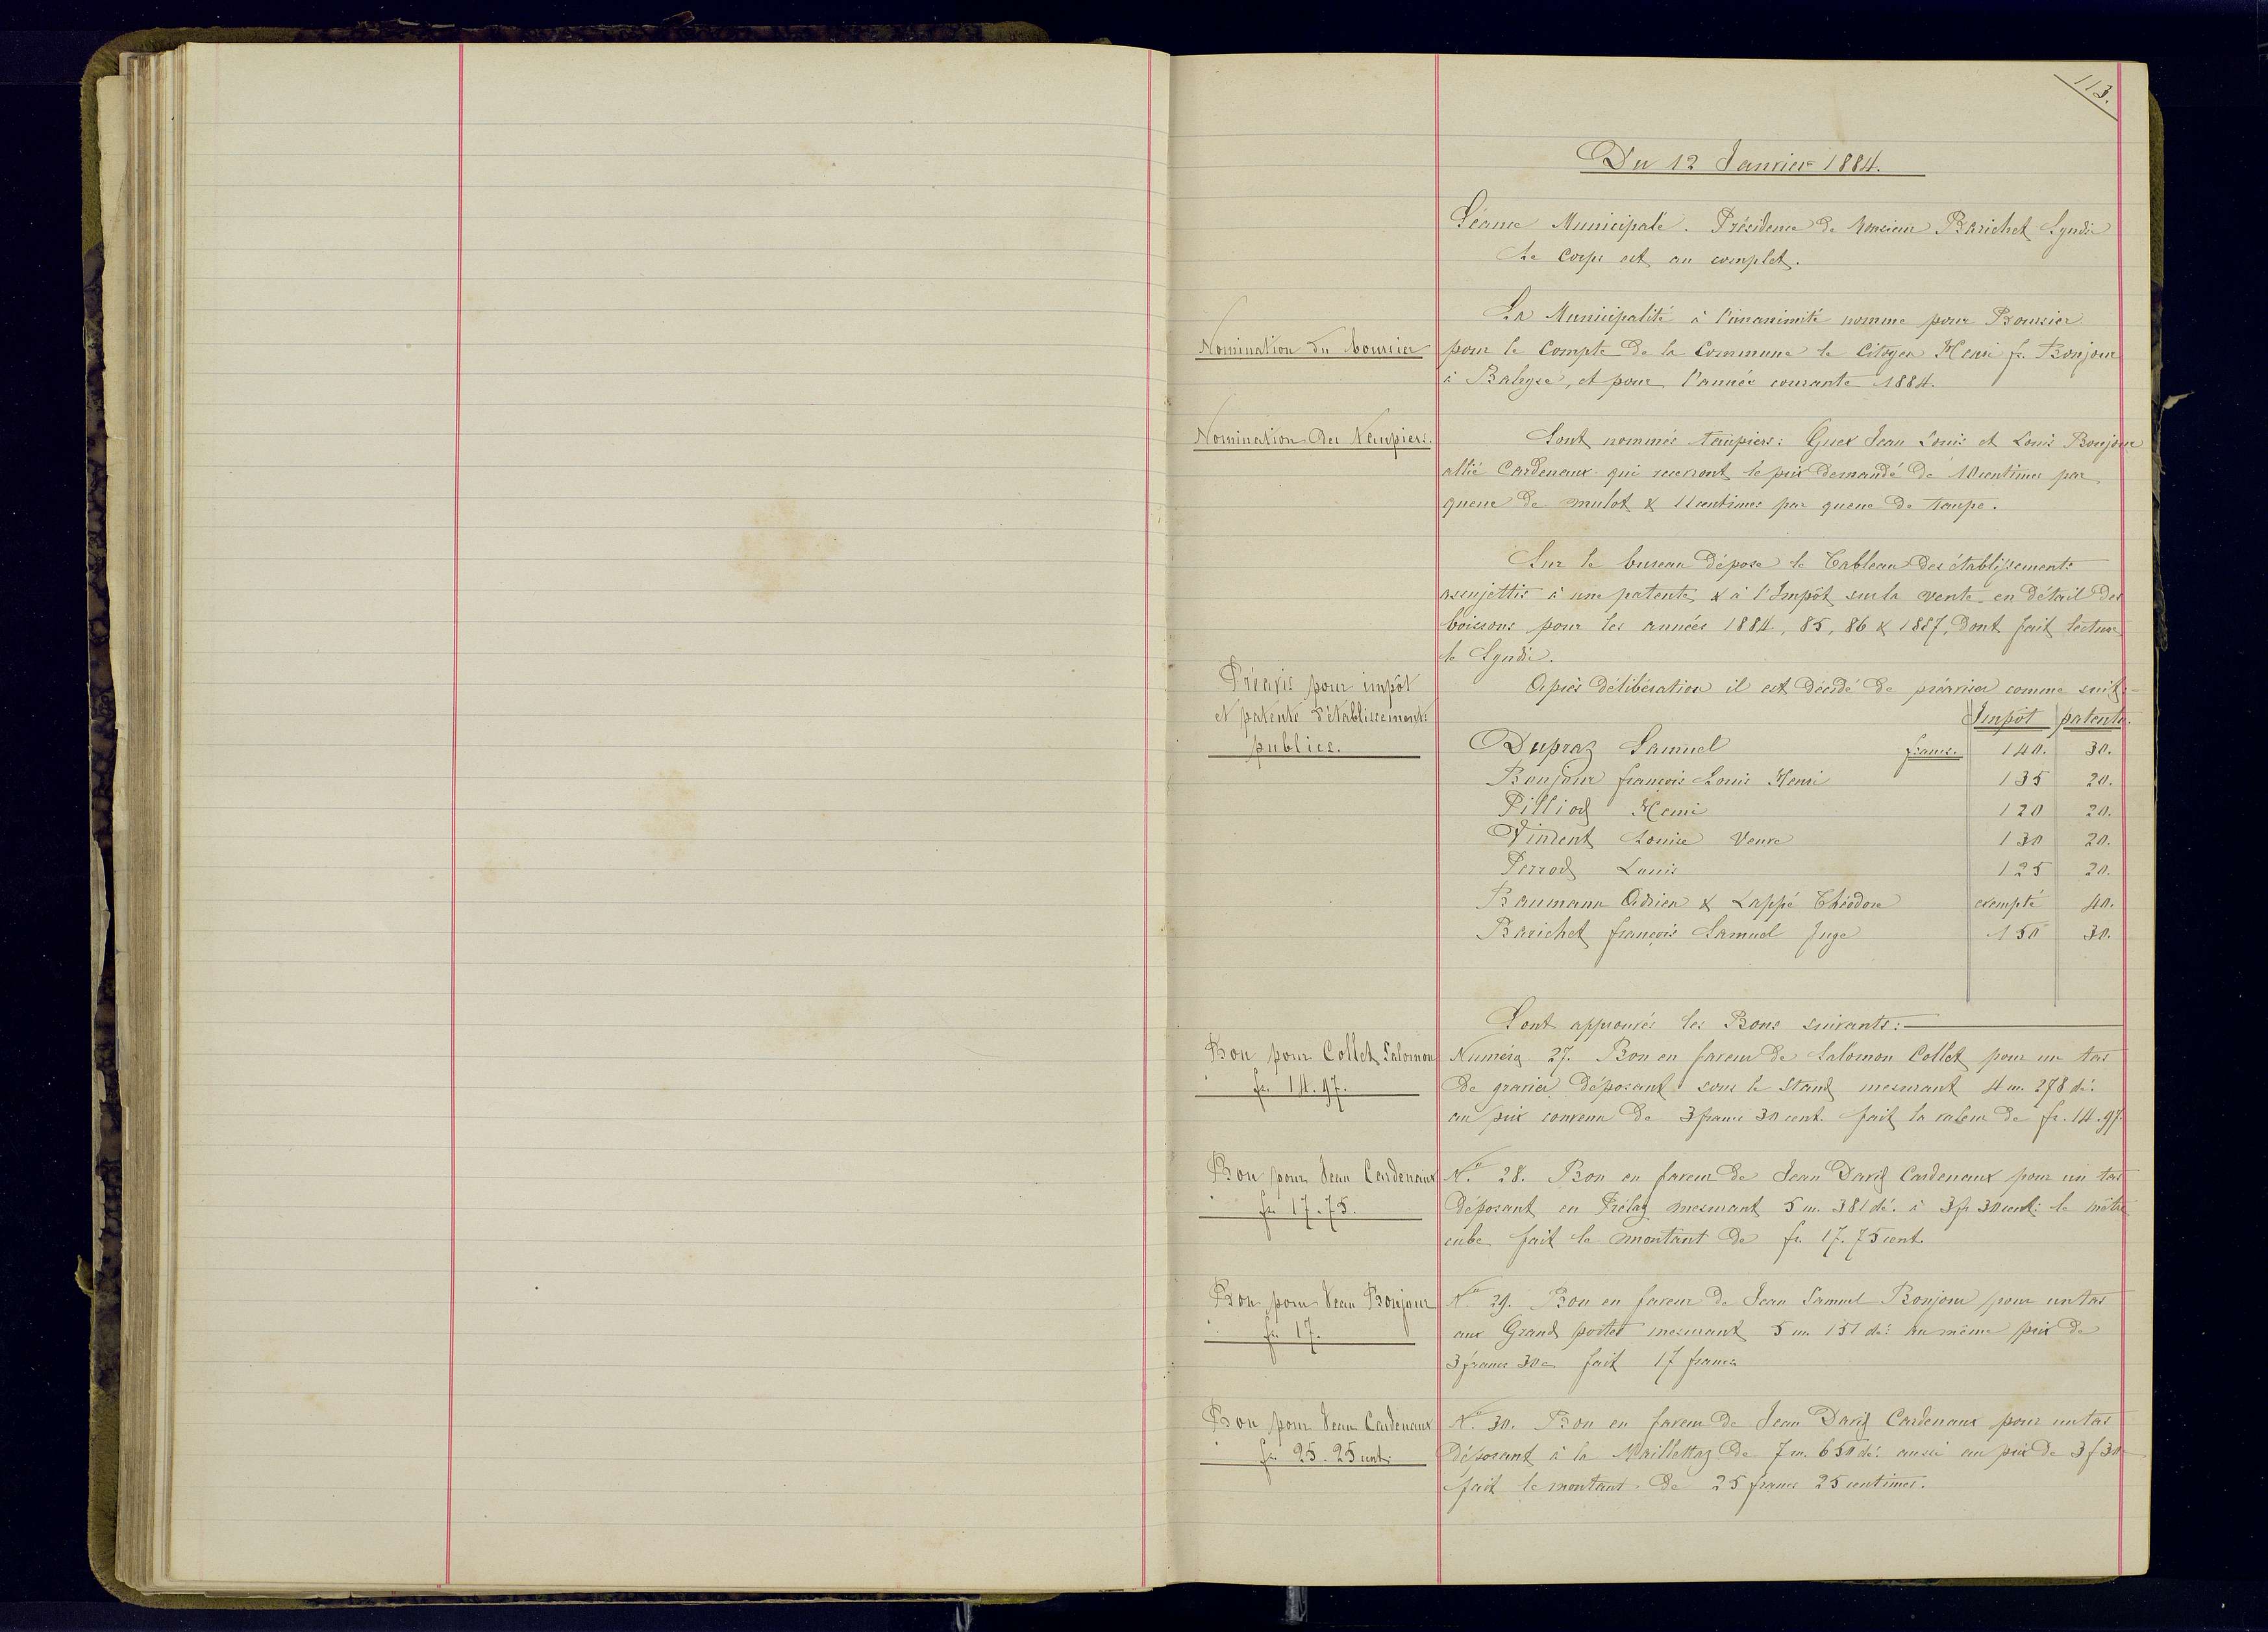 113.
Du 12 Janvier 1884.
Séance Municipale. Présidence de Monsieur Barichet Syndic
Le Corps est au complet.
La Municipalité à l'unanimité nomme pour Boursier
Nomination du boursier
pour le Compte de la Commune le Citoyen Henri fs. Bonjour
à Baleyre, et pour l'année courante 1884.
Nomination des Taupiers.
Sont nommés taupiers: Guex Jean Louis et Louis Bonjour
allié Cardenaux qui recevront le prix demandé de 10 centimes par
queue de mulot & 11 centimes par queue de taupe.
Sur le bureau dépose le Tableau des établissements
assujettis à une patente & à l'Impôt sur la vente en détail des
boissons pour les années 1884, 85, 86 & 1887, dont fait lecture
le Syndic.
Préavis pour impôt
et patente d'établissements
publics.
Après délibération il est décidé de préaviser comme suit:
Impôt patente.
Dupraz Samuel francs. 140. 30.
Bonjour françois Louis Henri 135 20.
Pilliod Henri 120 20.
Vincent Louise Veuve 130 20.
Perrod Louis 125 20.
Baumann Adrien & Lappé Théodore exempté 40.
Barichet françois Samuel Juge 150 30.
Sont approuvés les Bons suivants:
Bon pour Collet Salomon
fr. 14.97.
Numéro 27. Bon en faveur de Salomon Collet pour un tas
de gravier déposant sous le Stand mesurant 4 m. 278 dé.
au prix convenu de 3 francs 30 cent. fait la valeur de fr. 14.97.
Bon pour Jean Cardenaux
fr. 17.75.
No. 28. Bon en faveur de Jean David Cardenaux pour un tas
déposant en Prélaz mesurant 5 m. 381 dé. à 3 fr 30 cent: le mètre
cube fait le montant de fr. 17.75 cent.
Bon pour Jean Bonjour
fr. 17.
No. 29. Bon en faveur de Jean Samuel Bonjour pour un tas
aux Grand portes mesurant 5 m. 151 dé: au même prix de
3 francs 30 c fait 17 francs
Bon pour Jean Cardenaux
fr. 25.25 cent:
No. 30. Bon en faveur de Jean David Cardenaux pour un tas
déposant à la Maillettaz de 7 m. 650 dé. aussi au prix de 3 f 30
fait le montant de 25 francs 25 centimes.